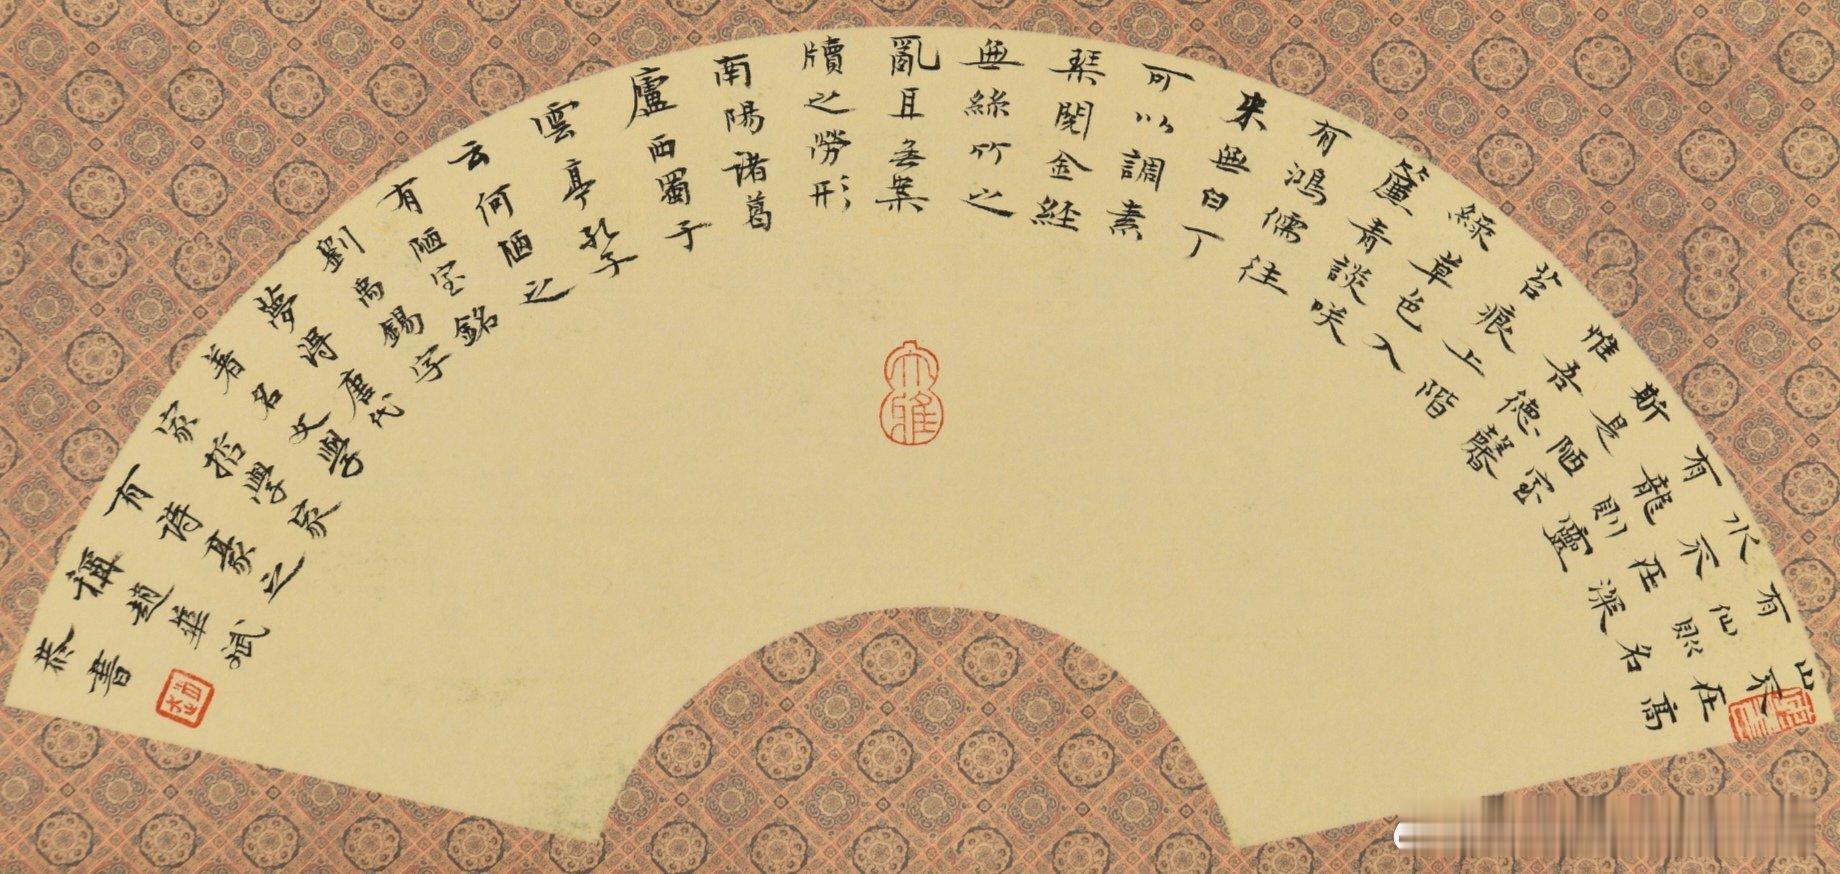 山不在高
有仙則名
水不在深
有龍則靈
斯是陋室
惟吾德馨
苔痕上階
綠草色入
簾青談咲
有鴻儒往
来無白丁
可以調素
琴閱金經
無絲竹之
亂耳無案
牘之勞形
南陽諸葛
廬西蜀子
雲亭孔子
云何陋之
有陋室銘
劉禹錫字
夢得唐代
著名文學
家哲學家
有詩豪之
稱趙華斌
恭書
大雅